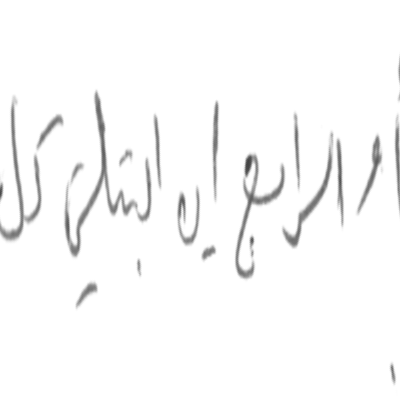 أو الرابع إن ابتلي كل